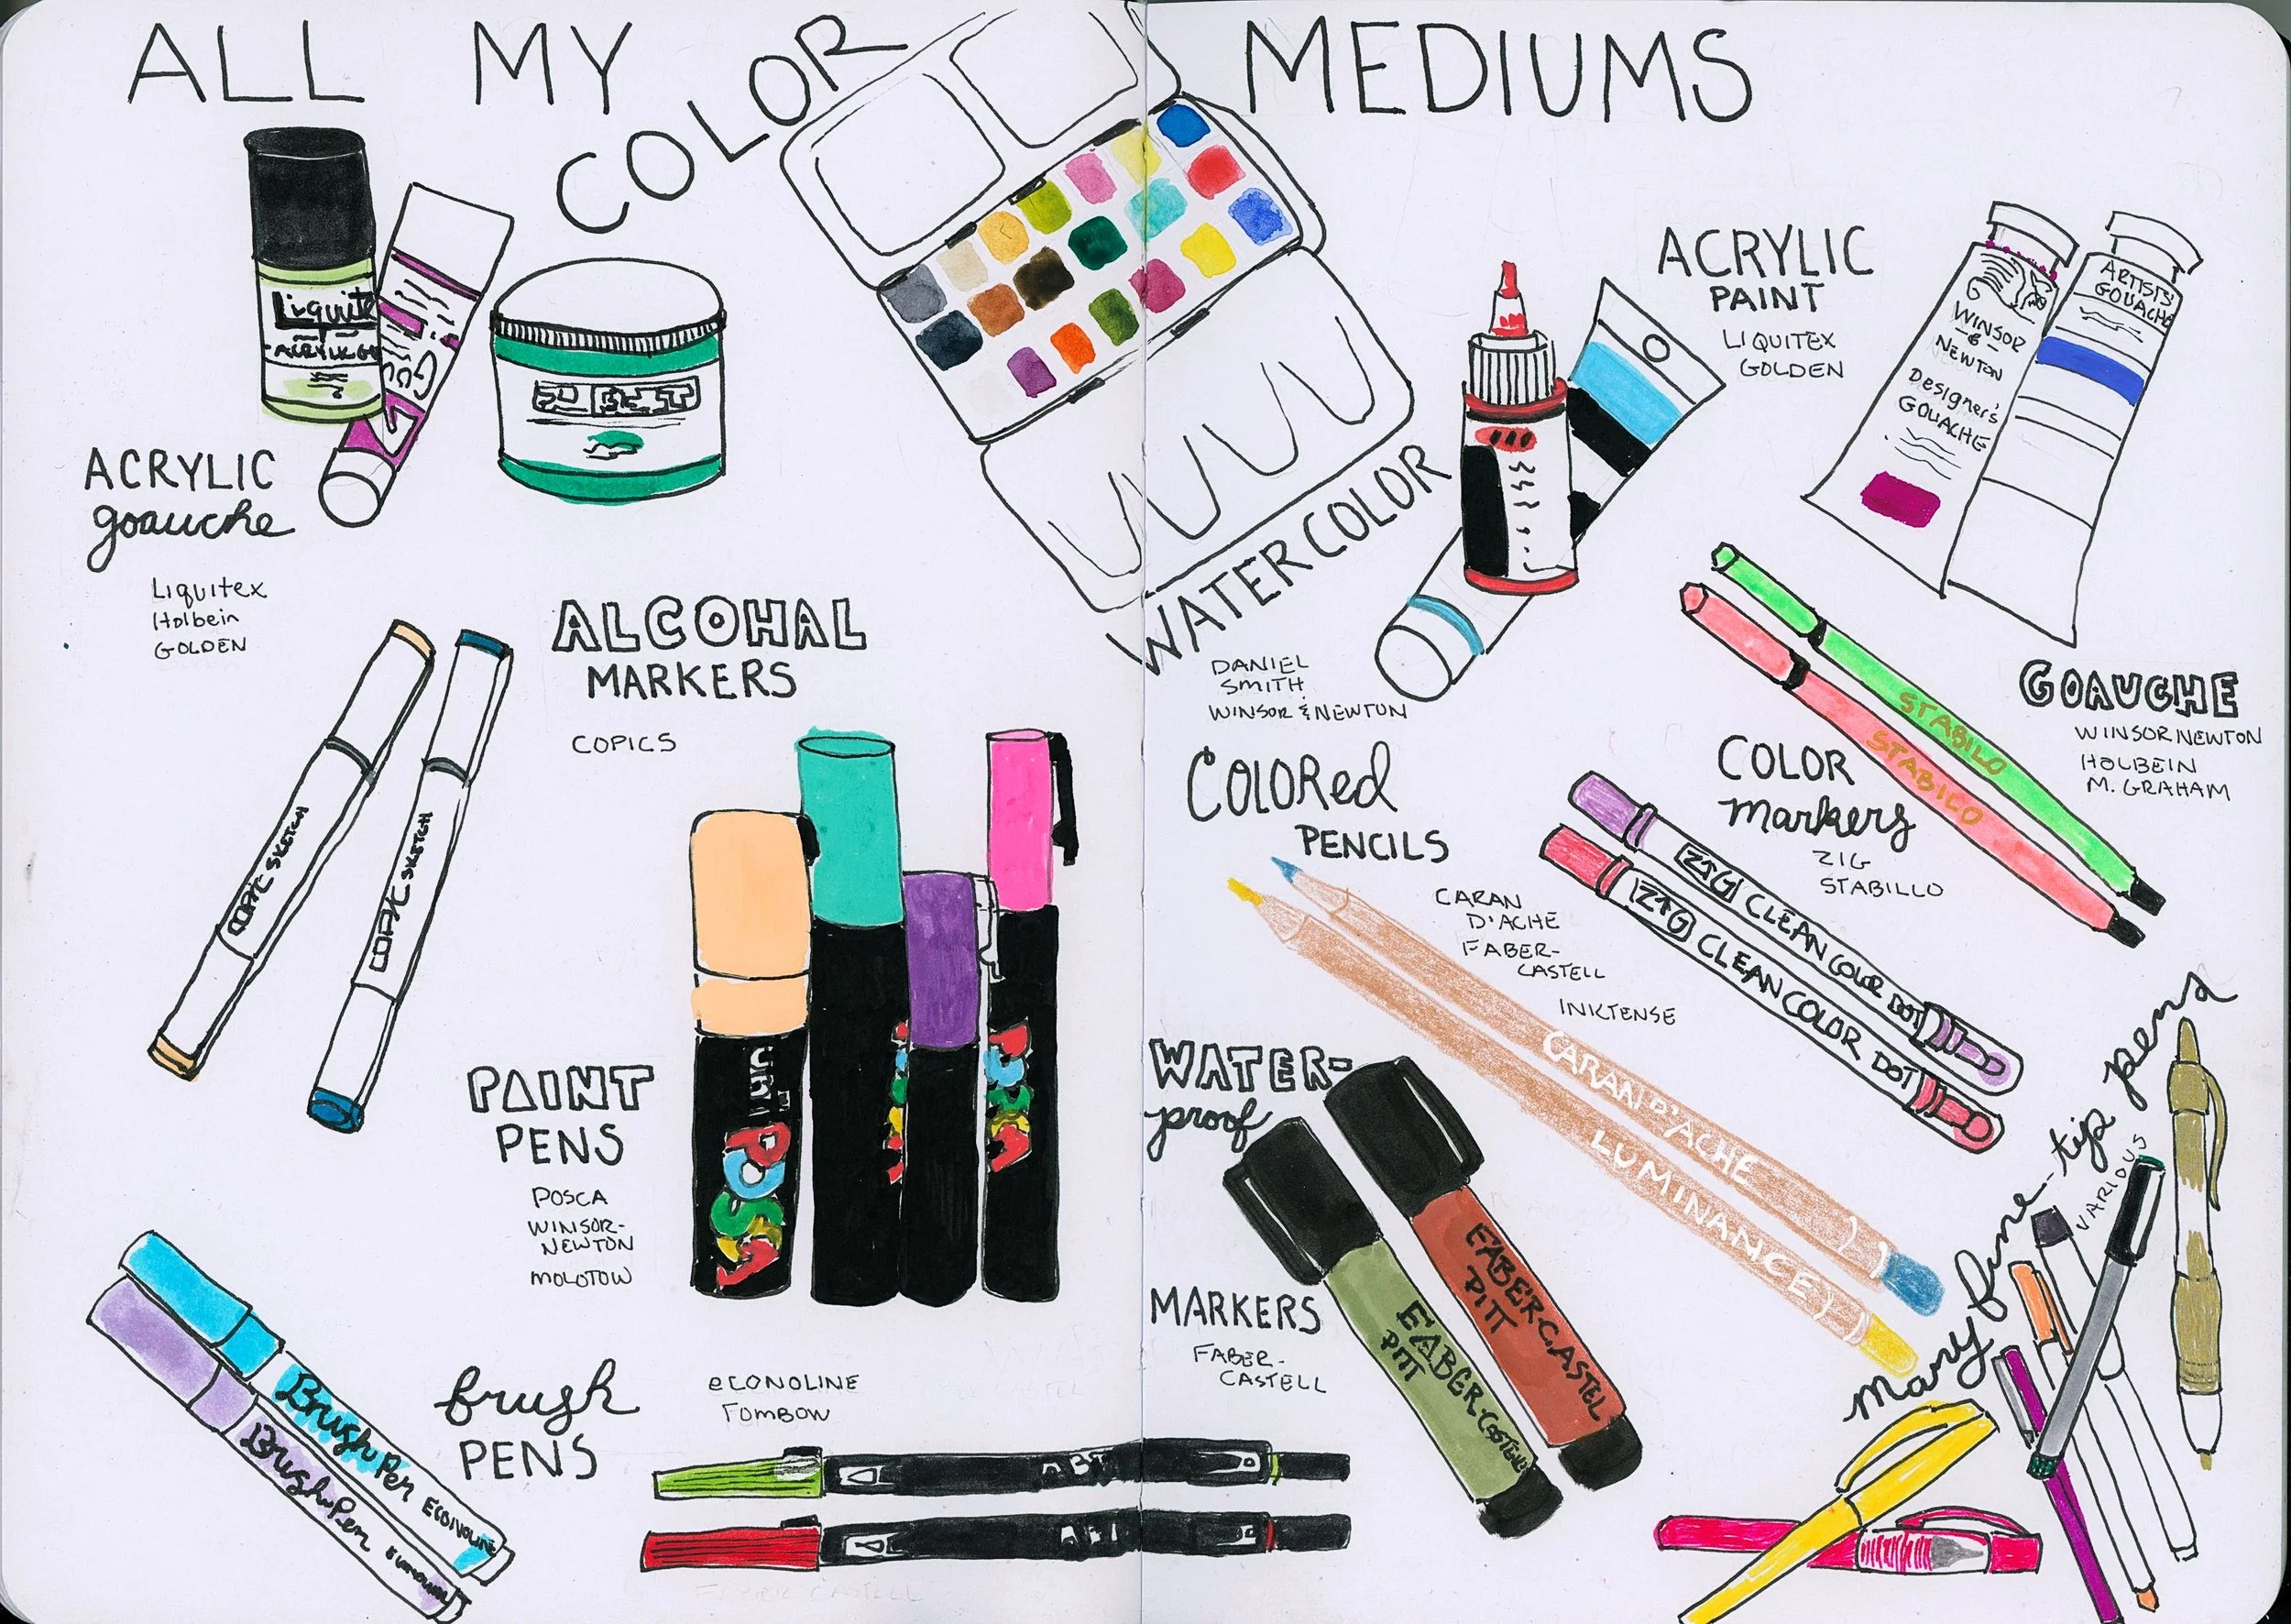 ALL MY COLOR MEDIUMS
ACRYLIC
goauche
Liquitex
Holbein
GOLDEN
ALCOHAL
MARKERS
COPICS
COPIC SKETCH
COPIC SKETCH
WATERCOLOR
DANIEL
SMITH
WINSOR & NEWTON
ACRYLIC
PAINT
LIQUITEX
GOLDEN
WINSOR
&
NEWTON
DESIGNER'S
GOUACHE
ARTISTS'
GOUACHE
GOAUCHE
WINSOR NEWTON
HOLBEIN
M. GRAHAM
STABILO
STABILO
COLOR
markers
ZIG
STABILLO
ZIG CLEAN COLOR DOT
ZIG CLEAN COLOR DOT
COLORed
PENCILS
CARAN
D'ACHE
FABER-
CASTELL
INKTENSE
CARAN D'ACHE
LUMINANCE
PAINT
PENS
POSCA
WINSOR-
NEWTON
MOLOTOW
uni POSCA
WATER-
proof
MARKERS
FABER-
CASTELL
FABER-CASTEL
PITT
FABER-CASTELL
PITT
brush
PENS
eCONOLINE
TOMBOW
Brush Pen ECOLINE
Brush Pen
ABT
ABT
many fine-tip pens
VARIOUS